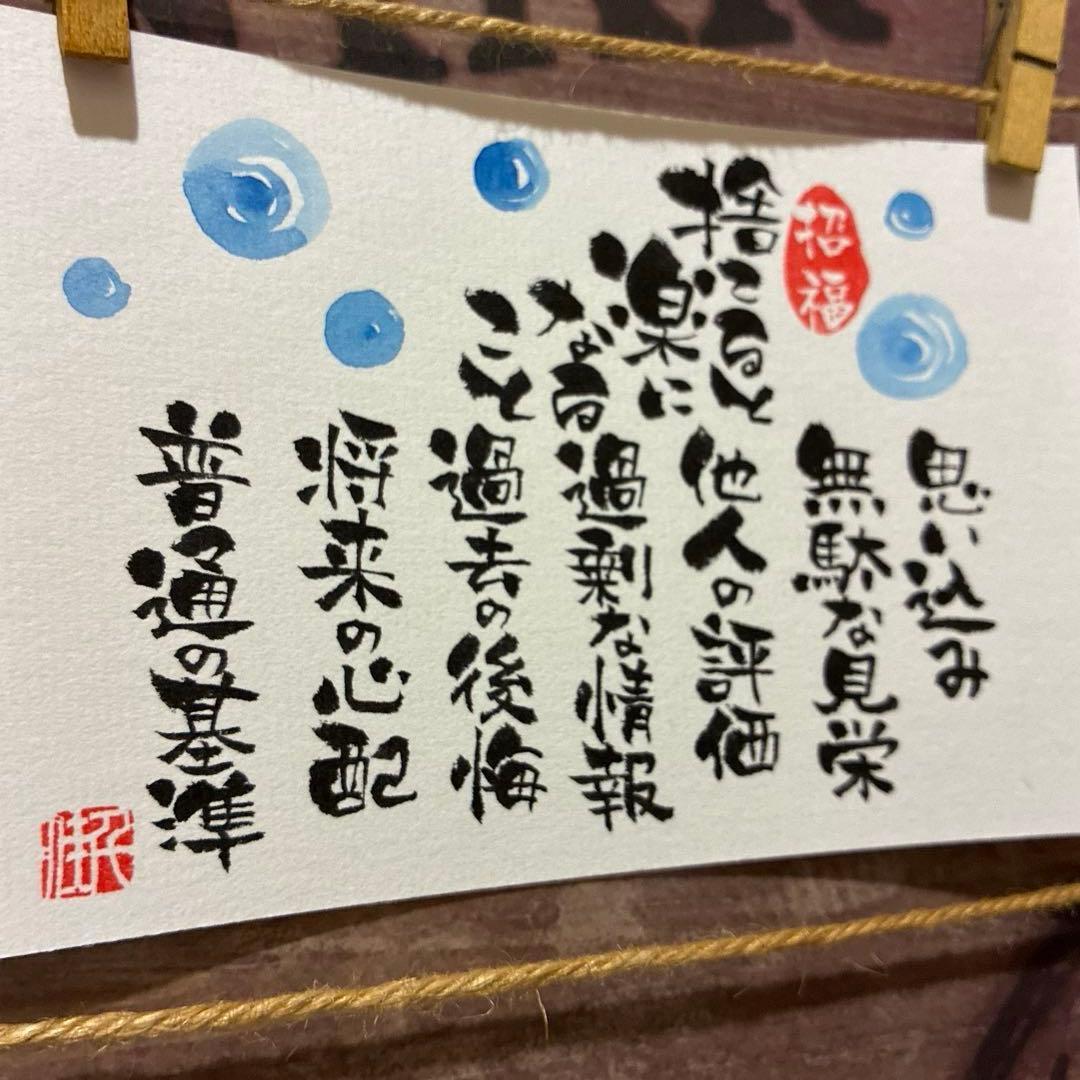 招福
捨てると
楽に
なる
こと
思い込み
無駄な見栄
他人の評価
過剰な情報
過去の後悔
将来の心配
普通の基準